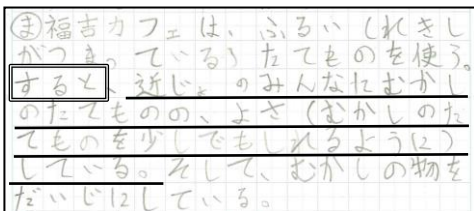 ㋮福吉カフェは、ふるい(れきし
がつまっている)たてものを使う。
すると、近じょのみんなにむかし
のたてものの、よさ(むかしのた
てものを少しでもしれるように)
している。そして、むかしの物を
だいじにしている。